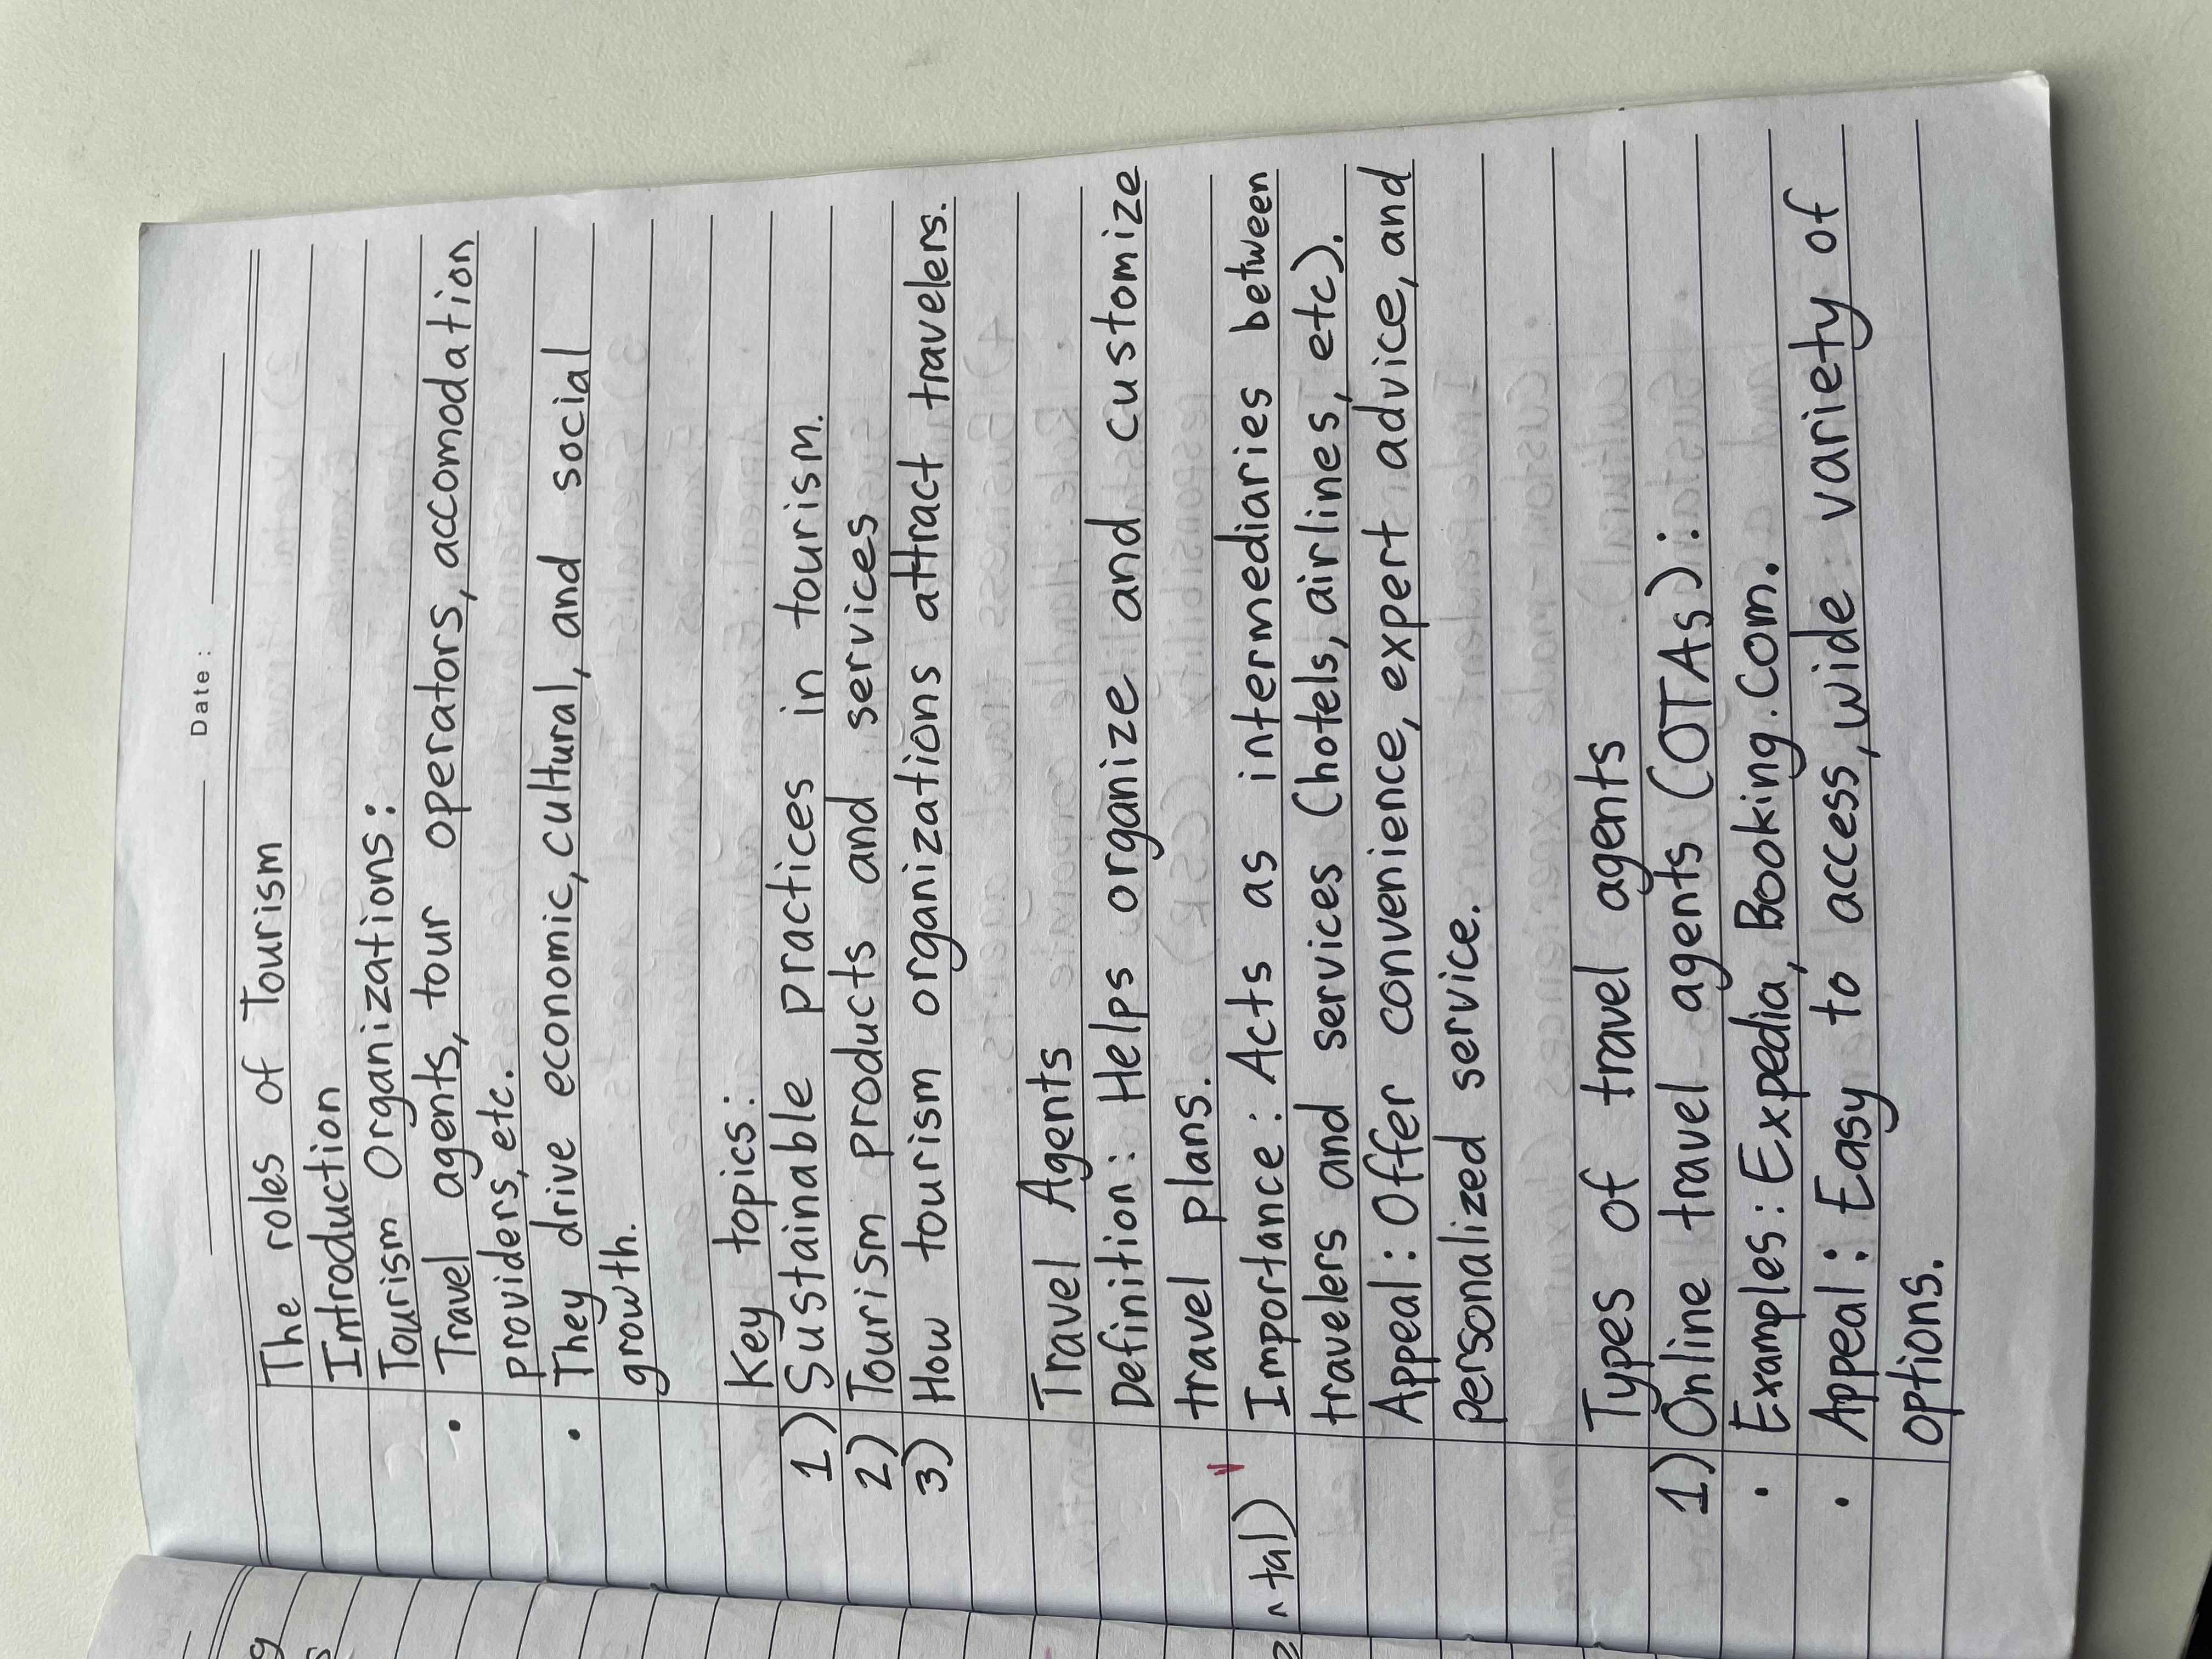 Date:
The roles of Tourism
Introduction
Tourism Organizations:
• Travel agents, tour operators, accomodation
providers, etc.
• They drive economic, cultural, and social
growth.
Key topics:
1) Sustainable practices in tourism.
2) Tourism products and services
3) How tourism organizations attract travelers.
Travel Agents
Definition: Helps organize and customize
travel plans.
Importance: Acts as intermediaries between
travelers and services (hotels, airlines, etc).
Appeal: Offer convenience, expert advice, and
personalized service.
Types of travel agents
1) Online travel agents (OTAs):
• Examples: Expedia, Booking.Com.
• Appeal: Easy to access, wide variety of
options.
ntal)